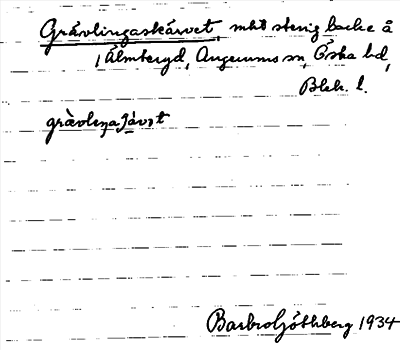 Grävlingaskärvet, mkt stenig backe å
Älmteryd, Augerums sn, Östra hd,
Blek. l.
grävlıŋa
Barbro Göthberg 1934